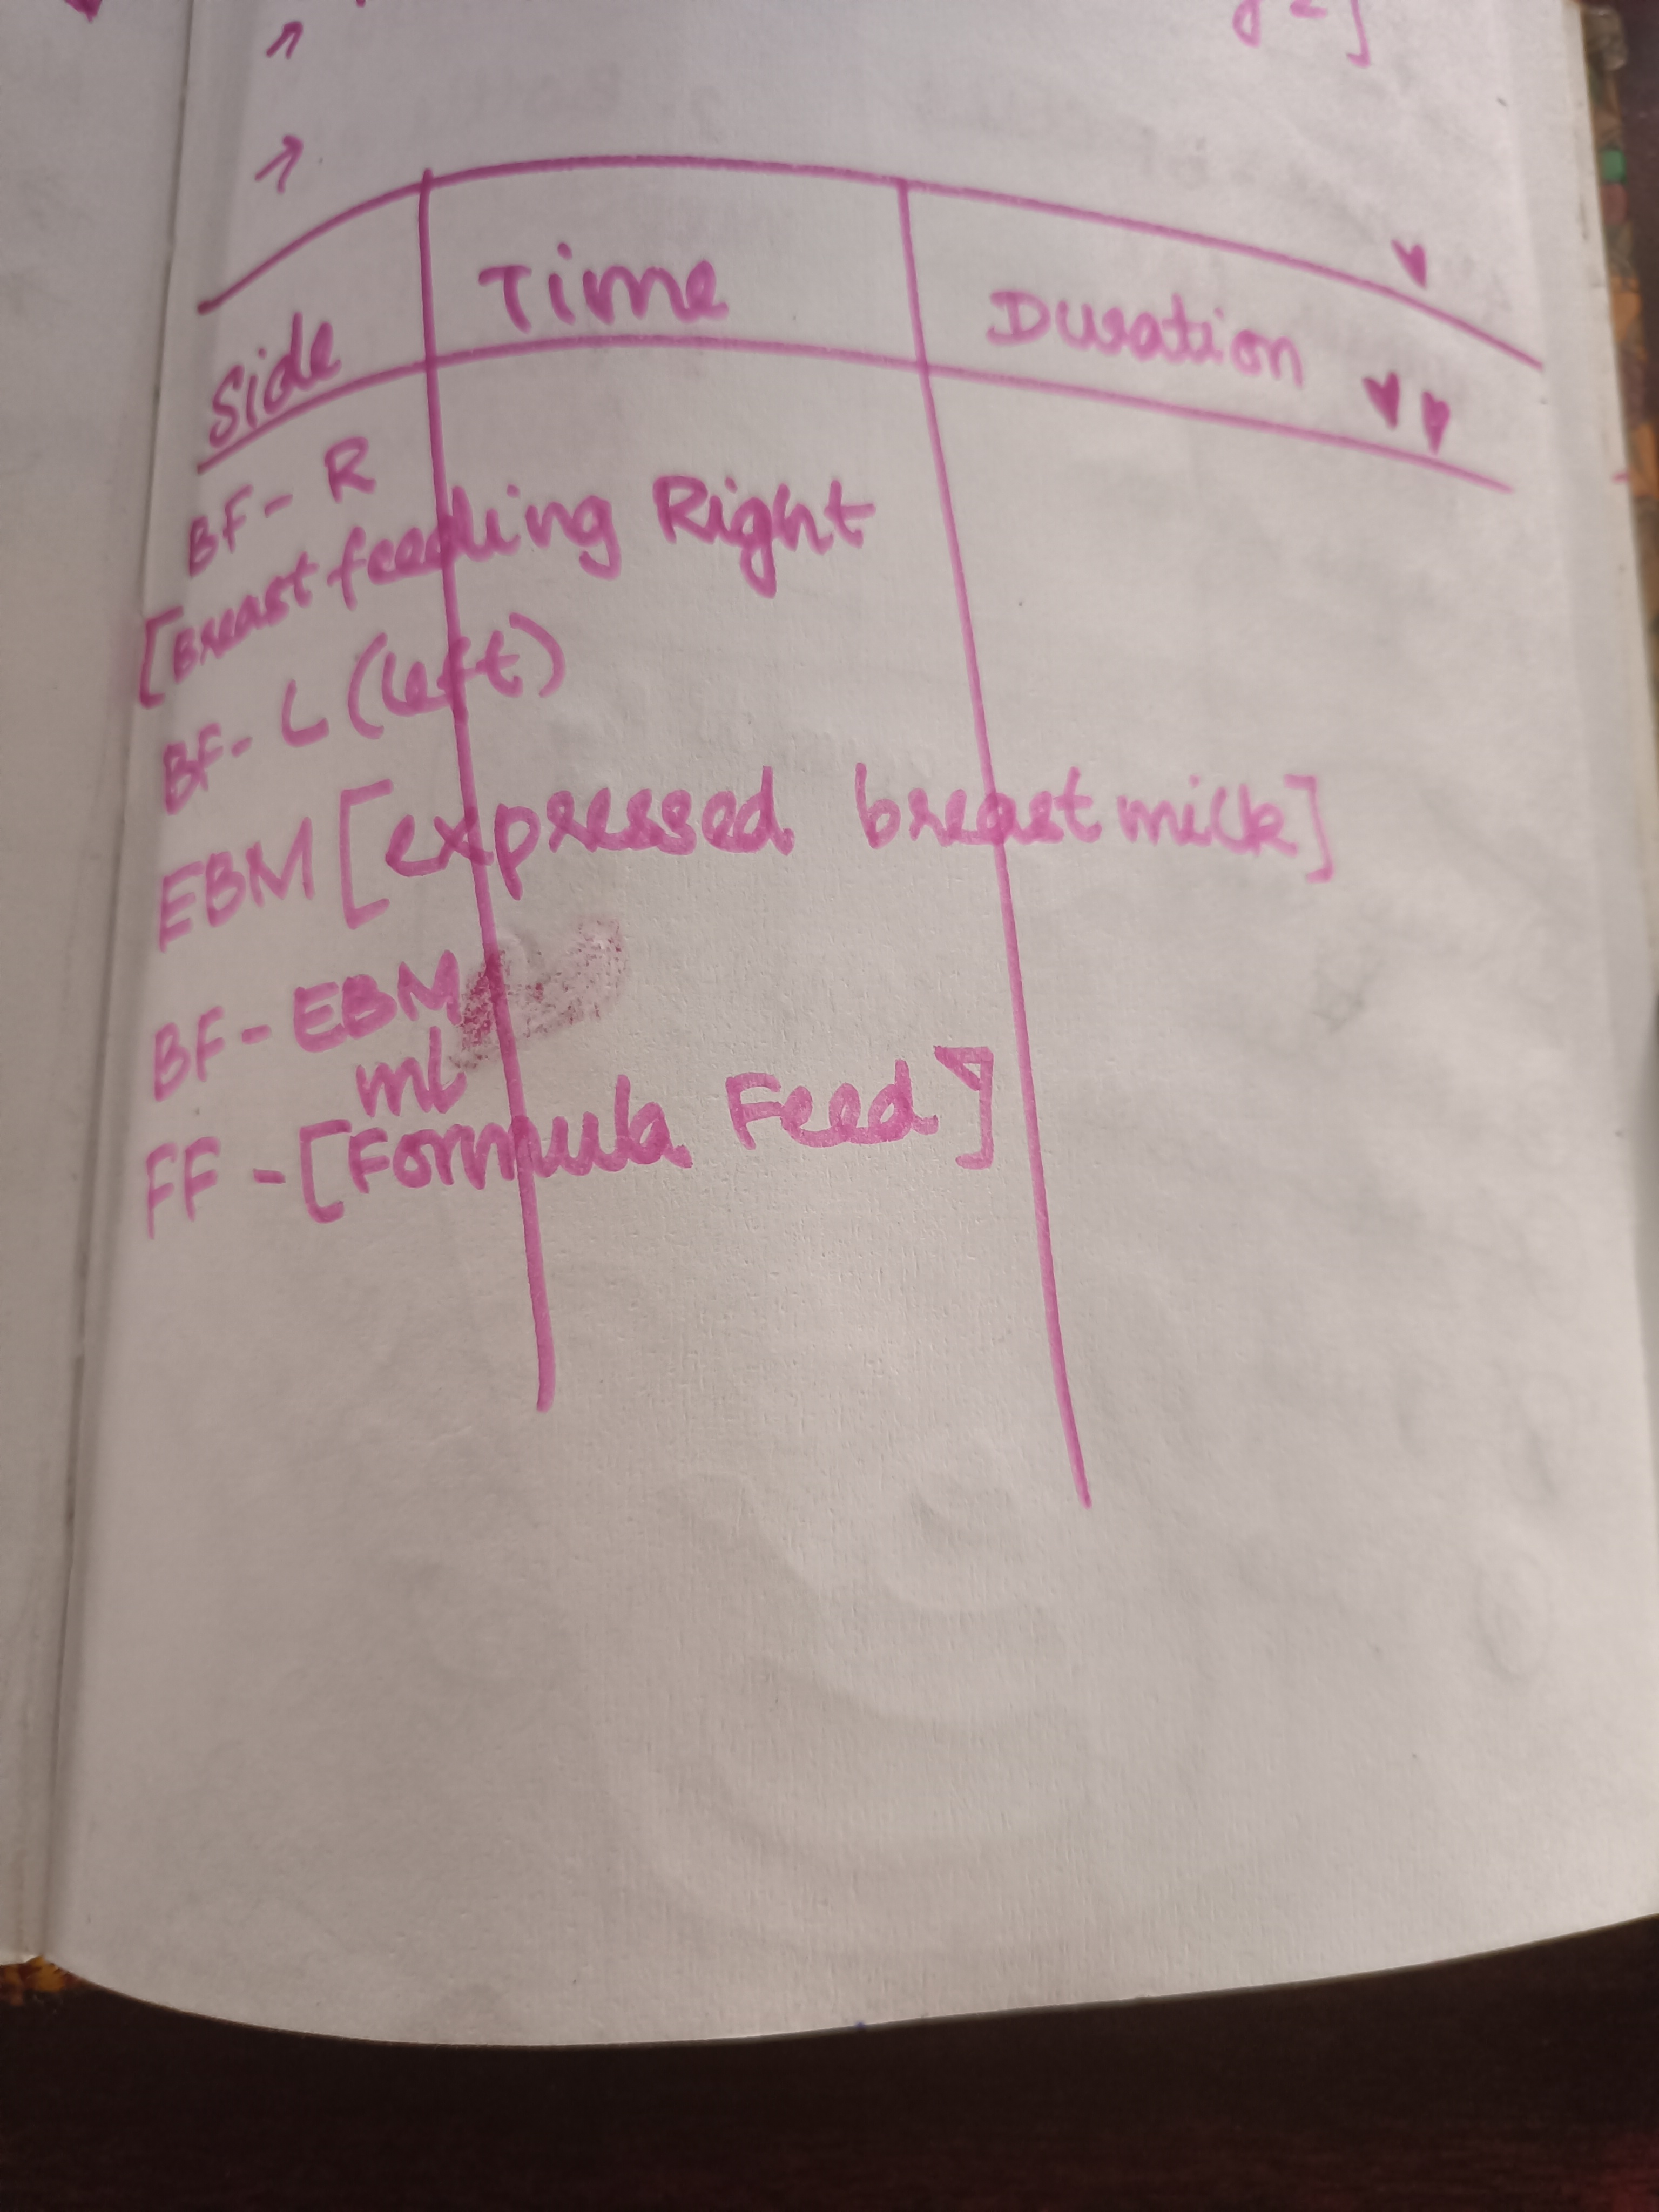 Side Time Duration
BF- R
[Breast feeding Right
BF- L (left)
EBM [expressed breast milk]
BF- EBM
ml
FF - [Formula Feed]